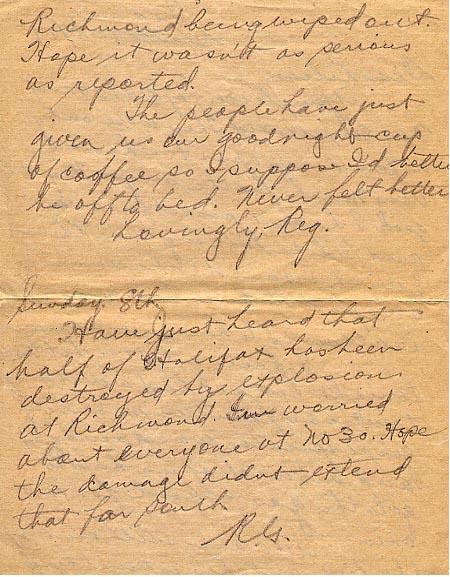 Richmond being wiped out.
Hope it wasn't as serious
as reported.
The people have just
given us our goodnight cup
of coffee so I suppose I'd better
be off to bed. Never felt better
Lovingly, Reg.
Sunday 8th
Have just heard that
half of Halifax has been
destroyed by explosion
at Richmond. Im worried
about everyone at No 30. Hope
the damage didnt extend
that far south
R.G.